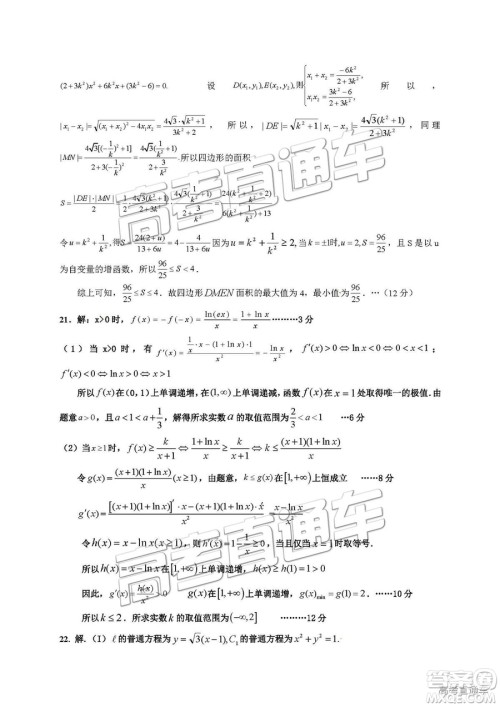 (2+3k²)x²+6k²x+(3k²−6)=0. 设 D(x₁,y₁),E(x₂,y₂),则 {x₁+x₂=−6k²/(2+3k²), x₁x₂=(3k²−6)/(2+3k²), 所以,
|x₁−x₂|=√((x₁+x₂)²−4x₁x₂)=4√3·√(k²+1)/(3k²+2) , 所以, |DE|=√(k²+1)|x₁−x₂|=4√3(k²+1)/(2+3k²) , 同理
|MN|=4√3[(−1/k)²+1]/(2+3(−1/k)²)=4√3(1/k²+1)/(2+3/k²).所以四边形的面积
令u=k²+1/k²,得S=24(2+u)/(13+6u)=4−4/(13+6u) 因为u=k²+1/k²≥2,当k=±1时,u=2,S=96/25,且 S 是以 u
为自变量的增函数,所以96/25≤S<4.
综上可知,96/25≤S≤4.故四边形DMEN面积的最大值为4,最小值为96/25.…(12 分)
21.解:x>0时,f(x)=−f(−x)=ln(ex)/x=(1+ln x)/x ………3分
(1)当 x>0 时,有 f′(x)=(1/x·x−(1+ln x)·1)/x²=−ln x/x² f′(x)>0⇔ln x<0⇔0<x<1;
f′(x)<0⇔ln x>0⇔x>1
所以f(x)在(0,1)上单调递增,在(1,∞)上单调递减,函数f(x)在x=1处取得唯一的极值.由
题意a>0,且a<1<a+1/3,解得所求实数a的取值范围为2/3<a<1 …6分
(2)当x≥1时,f(x)≥k/(x+1)⇔(1+ln x)/x≥k/(x+1)⇔k≤(x+1)(1+ln x)/x
令g(x)=(x+1)(1+ln x)/x(x≥1),由题意,k≤g(x)在[1,+∞)上恒成立 ……8分
g′(x)=([(x+1)(1+ln x)]′·x−(x+1)(1+ln x)·x′)/x²=(x−ln x)/x²
令h(x)=x−ln x(x≥1),则h′(x)=1−1/x≥0,当且仅当x=1时取等号.
所以h(x)=x−ln x在[1,+∞)上单调递增,h(x)≥h(1)=1>0.
因此,g′(x)=h(x)/x²>0 g(x)在[1,+∞)上单调递增,g(x)min=g(1)=2.……10分
所以k≤2.所求实数k的取值范围为(−∞,2] ………12分
22.解.(I)ℓ的普通方程为y=√3(x−1),C₁的普通方程为x²+y²=1.
高考直通车
高考直通车